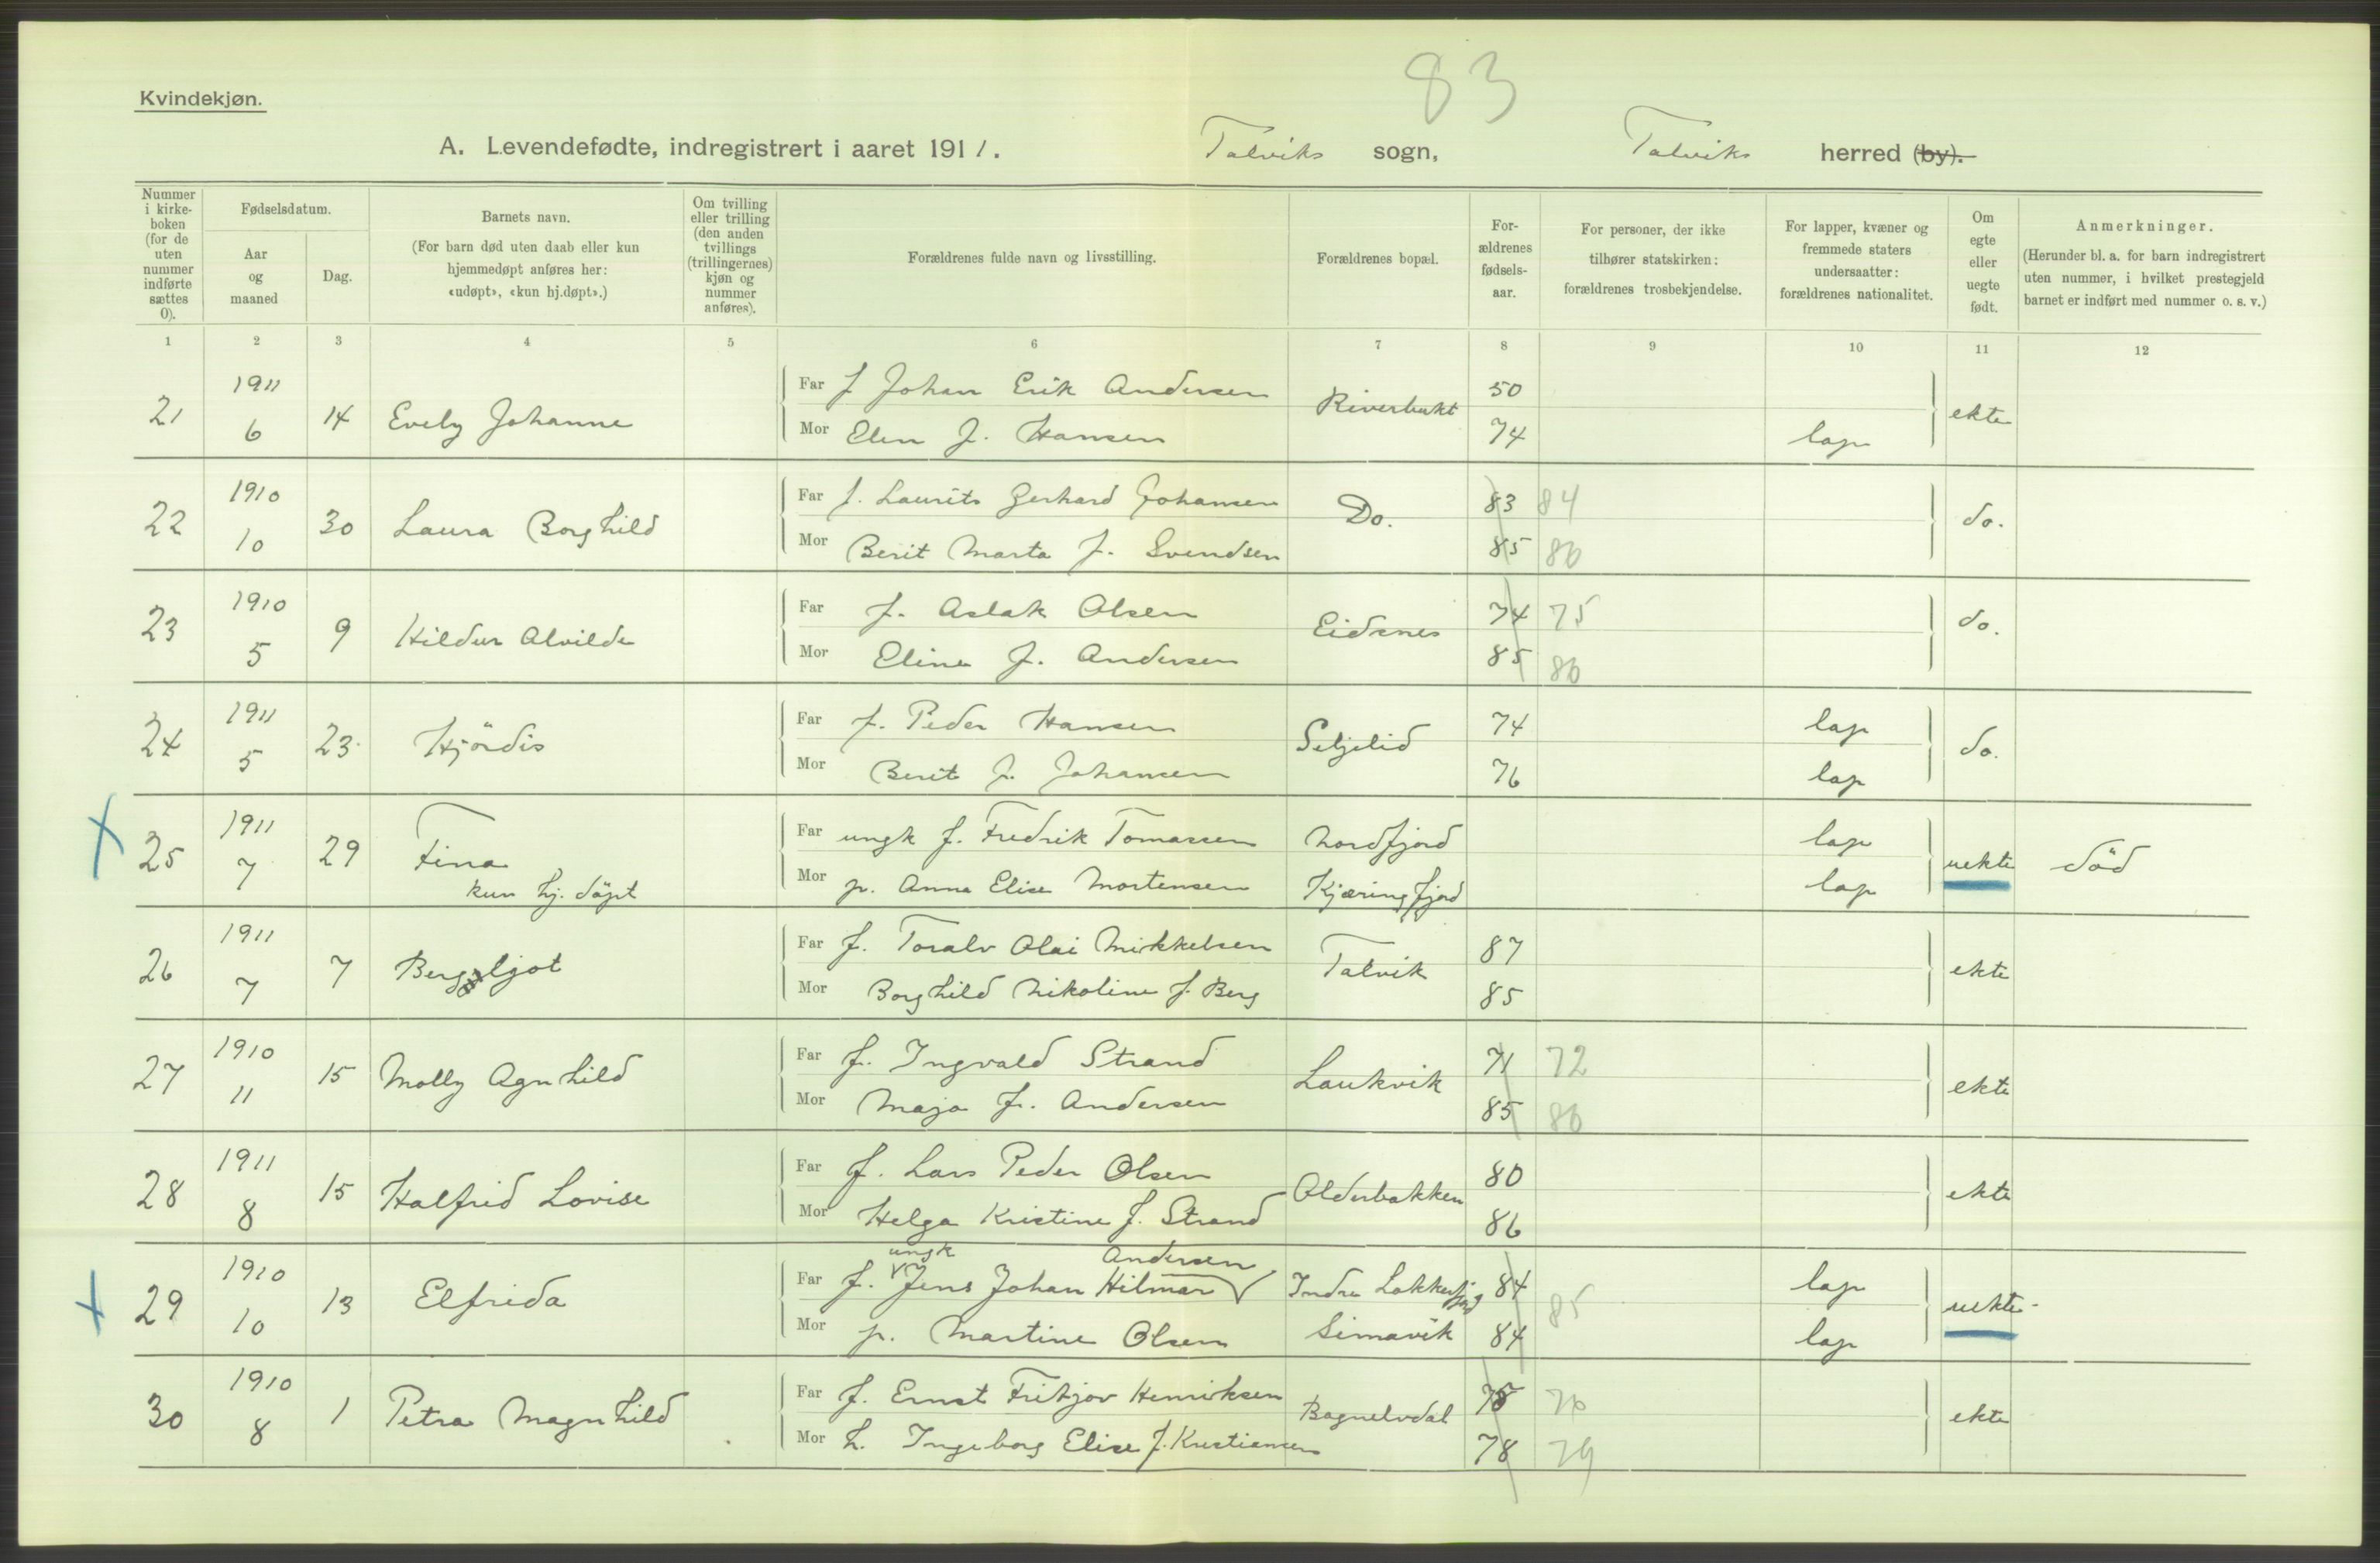 83
Kvindekjøn.
A. Levendefødte, indregistrert i aaret 1911. Talviks sogn, Talviks herred (by).
Nummer i kirke-boken (for de uten nummer indførte sættes 0).
Fødselsdatum.
Aar og maaned
Dag.
Barnets navn.
(For barn død uten daab eller kun hjemmedøpt anføres her: «udøpt», «kun hj.døpt».)
Om tvilling eller trilling (den anden tvillings (trillingernes) kjøn og nummer anføres).
Forældrenes fulde navn og livsstilling.
Forældrenes bopæl.
For-ældrenes fødsels-aar.
For personer, der ikke tilhører statskirken: forældrenes trosbekjendelse.
For lapper, kvæner og fremmede staters undersaatter: forældrenes nationalitet.
Om egte eller uegte født.
Anmerkninger.
(Herunder bl. a. for barn indregistrert uten nummer, i hvilket prestegjeld barnet er indført med nummer o. s. v.)
1 2 3 4 5 6 7 8 9 10 11 12
21 1911 6 14 Evely Johanne
Far f Johan Erik Andersen Riverbukt 50 ekte
Mor Elen f. Hansen 74 lap
22 1910 10 30 Laura Borghild
Far f. Laurits Gerhard Johansen Do. 83 84 do.
Mor Berit Marta f. Svendsen 85 86
23 1910 5 9 Hildur Alvilde
Far f. Aslak Olsen Eidsnes 74 75 do.
Mor Eline f. Andersen 85 86
24 1911 5 23 Hjördis
Far f. Peder Hansen Seljelid 74 lap do.
Mor Berit f. Johansen 76 lap
25 1911 7 29 Fina
kun hj. döpt
Far ungk f. Fredrik Tomassen Nordfjord lap uekte död
Mor p. Anna Elise Mortensen Kjæringfjord lap
26 1911 7 7 Bergljot
Far f. Toralv Olai Mikkelsen Talvik 87 ekte
Mor Borghild Nikoline f. Berg 85
27 1910 11 15 Molly Agnhild
Far f. Ingvald Strand Laukvik 71 72 ekte
Mor Maja f. Andersen 85 86
28 1911 8 15 Halfrid Lovise
Far f. Lars Peder Olsen Olderbakken 80 ekte
Mor Helga Kristine f. Strand 86
29 1910 10 13 Elfrida
ungk Andersen
Far f. Jens Johan Hilmar Indre Lokkerfjord 84 85 lap uekte
Mor p. Martine Olsen Simavik 84 lap
30 1910 8 1 Petra Magnhild
Far f. Ernst Fritjov Henriksen Bognelvdal 75 76 ekte
Mor h. Ingeborg Elise f. Kristiansen 78 79